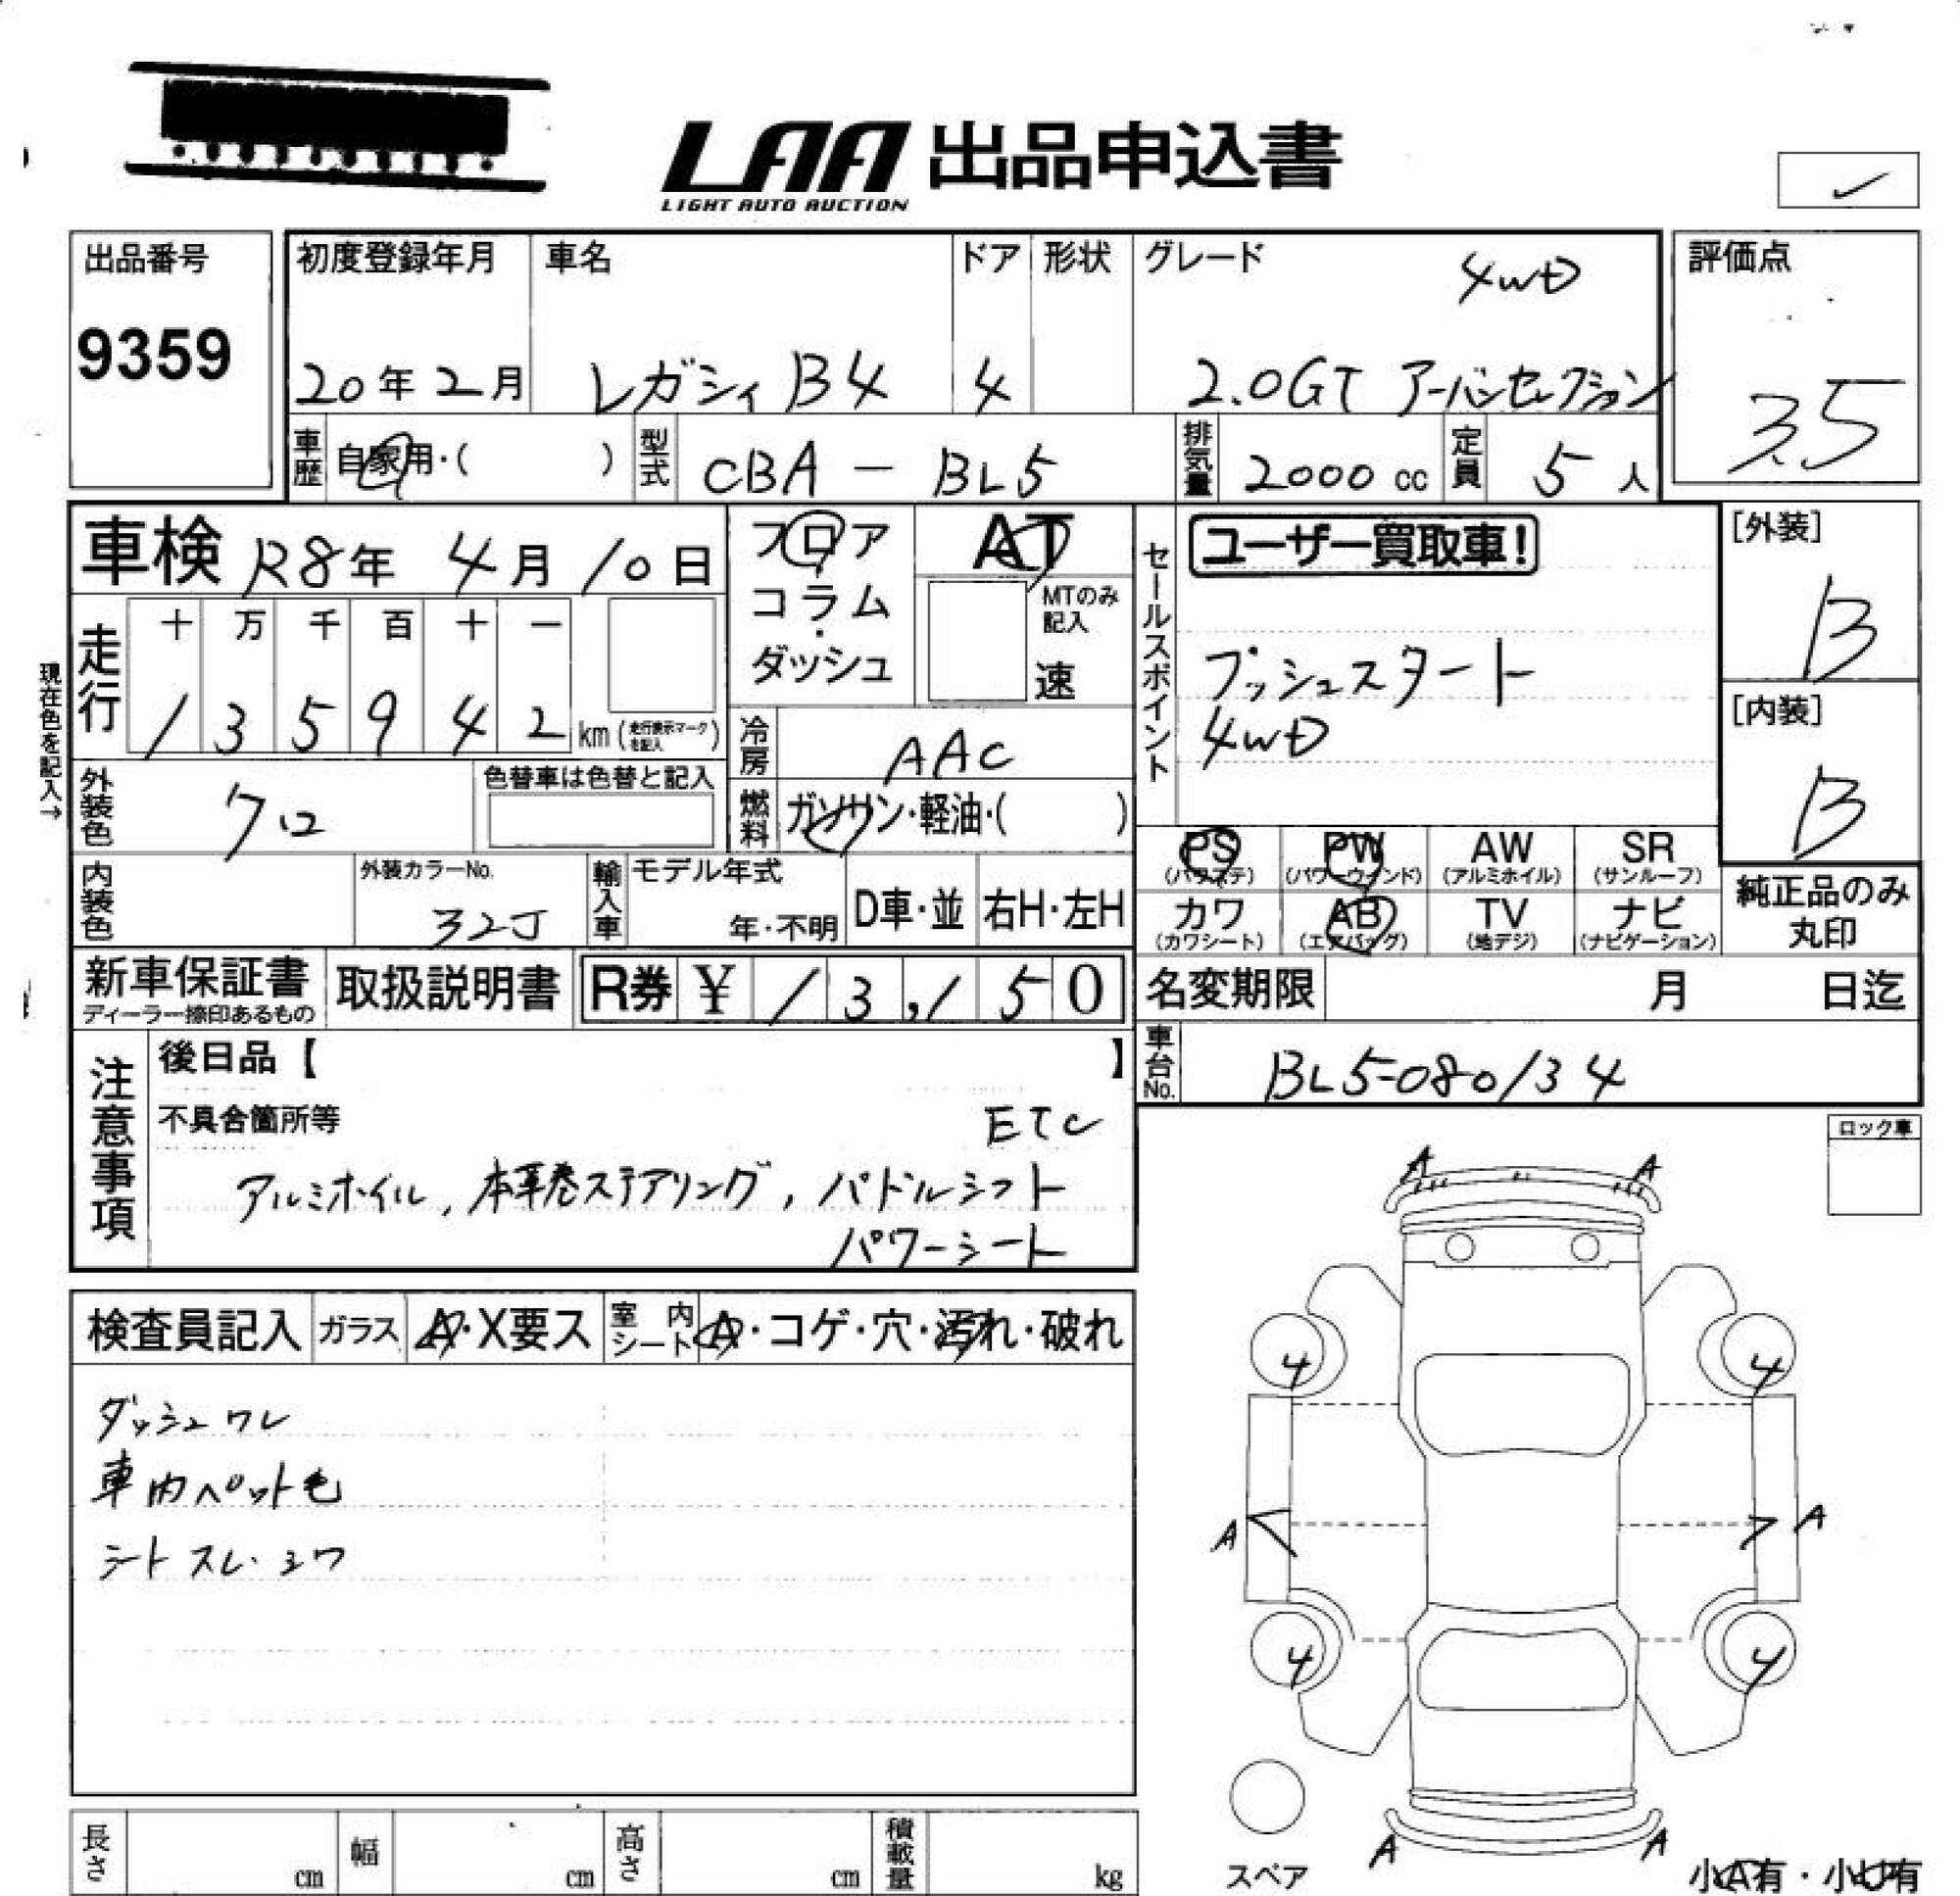 LAA 出品申込書
LIGHT AUTO AUCTION
出品番号
9359
初度登録年月
20年2月
車名
レガシィB4
ドア
4
形状
グレード
4WD
2.0GT アーバンセレクション
評価点
3.5
車歴
自家用・( )
型式
CBA - BL5
排気量
2000 cc
定員
5 人
車検 R8年 4月 10日
現在色を記入→
走行
十 万 千 百 十 一
1 3 5 9 4 2 km (走行表示マークを記入)
フロア
コラム
・
ダッシュ
AT
MTのみ記入
速
セールスポイント
ユーザー買取車!
プッシュスタート
4WD
[外装]
B
[内装]
B
外装色
クロ
色替車は色替と記入
冷房
AAC
燃料
ガソリン・軽油・( )
内装色
外装カラーNo.
32J
輸入車
モデル年式
年・不明
D車・並
右H・左H
PS (パワステ)
PW (パワーウインド)
AW (アルミホイル)
SR (サンルーフ)
カワ (カワシート)
AB (エアバッグ)
TV (地デジ)
ナビ (ナビゲーション)
純正品のみ
丸印
新車保証書
ディーラー捺印あるもの
取扱説明書
R券 ¥ 13,150
名変期限 月 日迄
車台No.
BL5-080134
注意事項
後日品【 】
不具合箇所等
ETC
アルミホイル, 本革巻ステアリング, パドルシフト
パワーシート
ロック車
検査員記入
ガラス
A・X要ス
室内シート
A・コゲ・穴・汚れ・破れ
ダッシュワレ
車内ペット毛
シートスレ・シワ
A A
4 4
A A
4 4
A A
スペア
小A有・小U有
長さ cm
幅 cm
高さ cm
積載量 kg